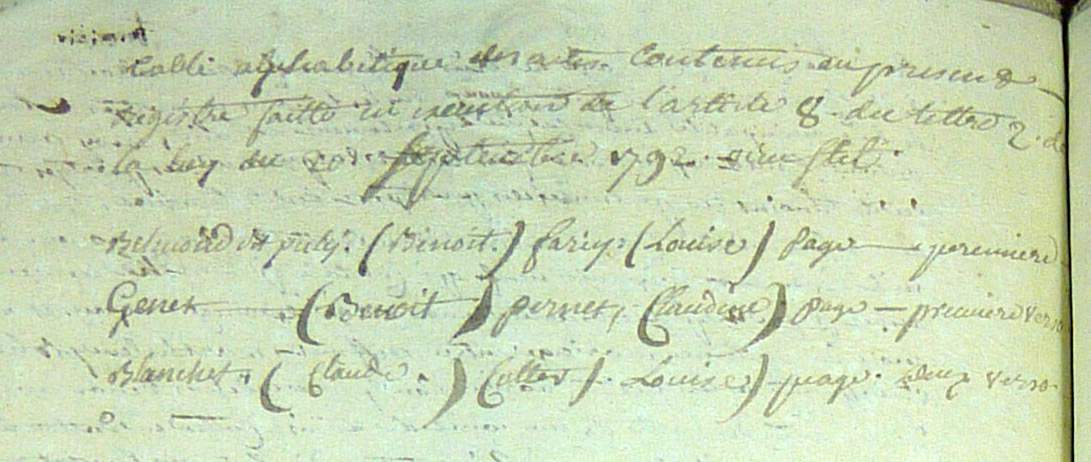 table alphabetique des actes Contenus au present
registre faitte en execution de l'article 8. du tittre 2. de
la loy du 20e. septembre 1792.
(Benoit.) (Louise) page premiere
Genet (Benoit) pernet, (Claudine) page premiere verso
Blanchet. (Claude.) (Louise) page. deux verso